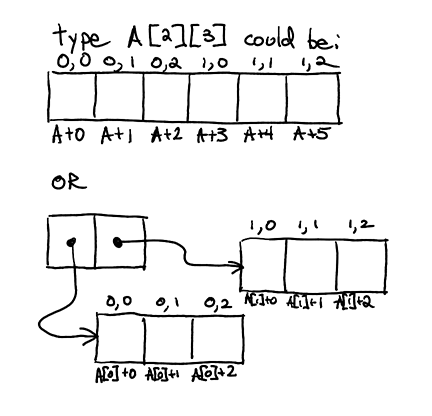 type A[2][3] could be:
0,0 0,1 0,2 1,0 1,1 1,2
A+0 A+1 A+2 A+3 A+4 A+5
OR
1,0 1,1 1,2
A[1]+0 A[1]+1 A[1]+2
0,0 0,1 0,2
A[0]+0 A[0]+1 A[0]+2